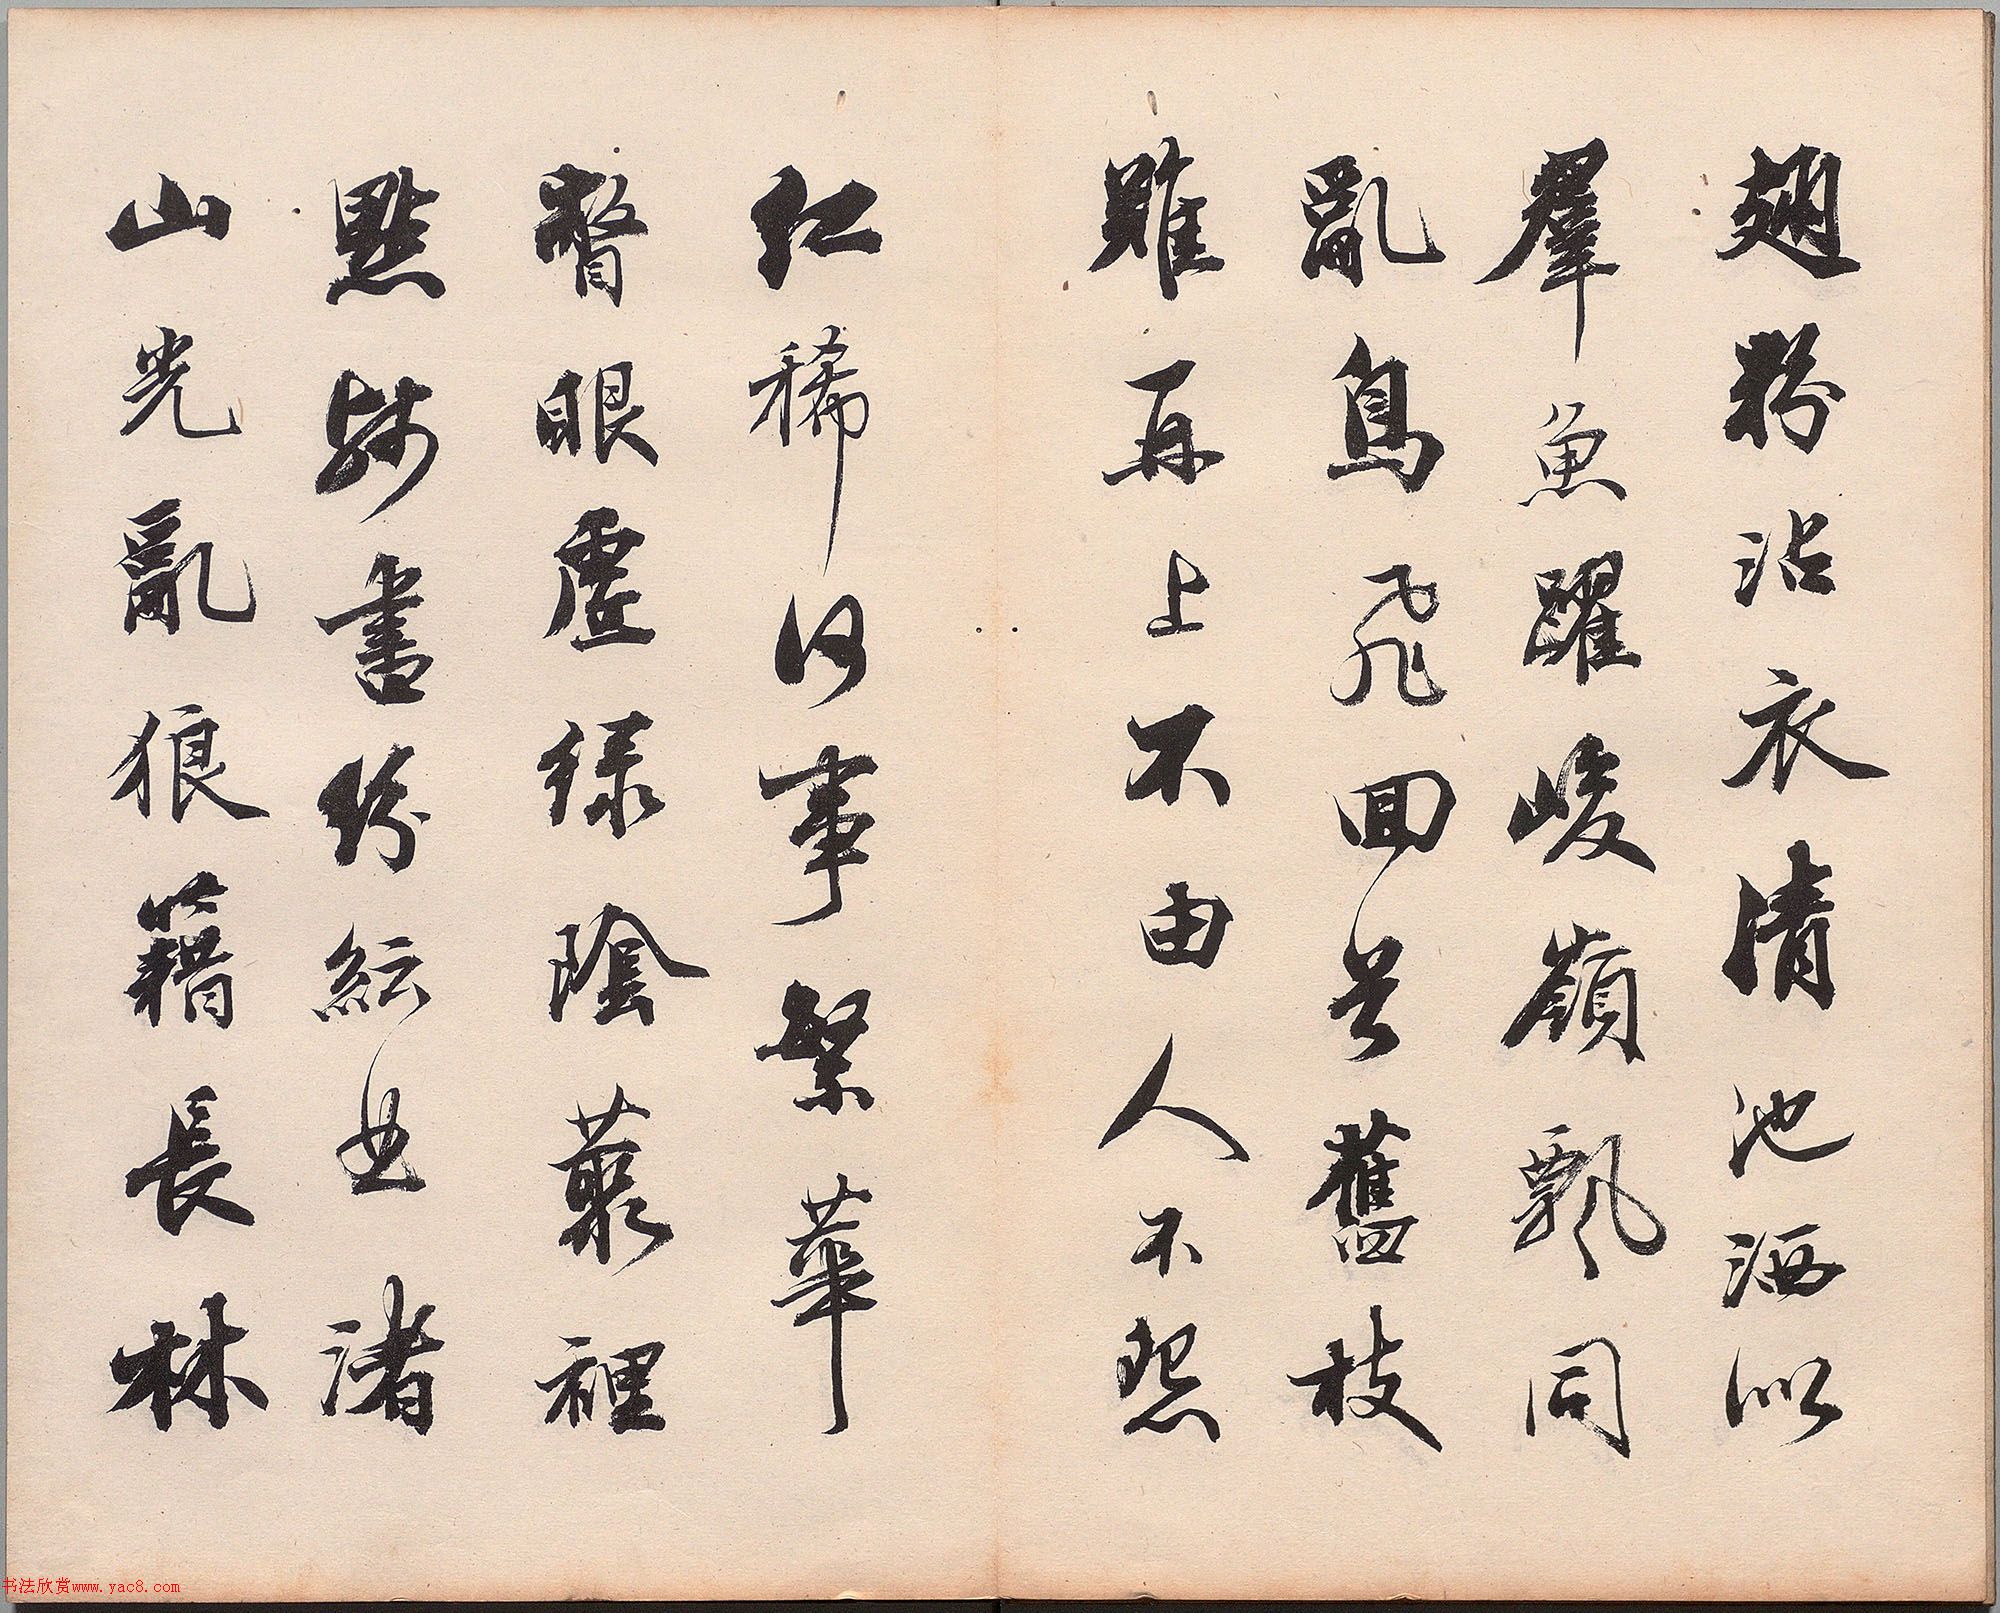 翅粉沾衣清池洒似
羣魚躍峻嶺飄同
亂鳥飛回首舊枝
雖再上不由人不怨
紅稀何事繁華
瞥眼虛綠陰叢裡
點殘書紛紜曲渚
山光亂狼籍長林
书法欣赏www.yac8.com